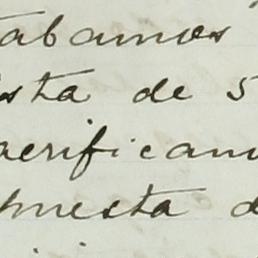 tabamos
sta de 5
acrificam
puesta d